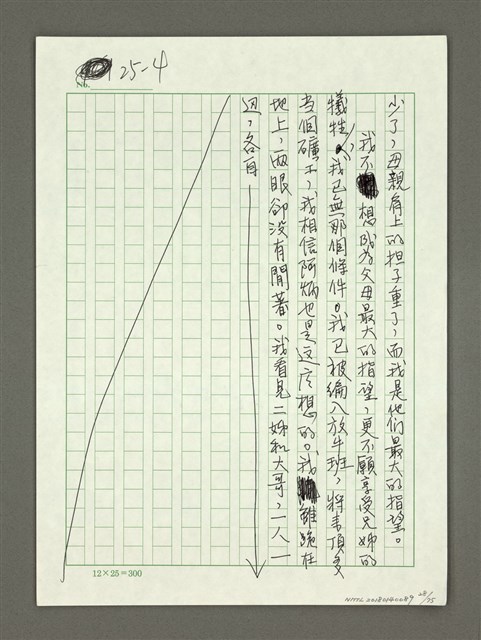 25-4
No.
少了，母親肩上的担子重了，而我是他們最大的指望。
我不想成为父母最大的指望，更不願享受兄姊的
犧牲，我已無那個條件。我已被編入放牛班，將來頂多
当個礦工，我相信阿炳也是這広想的。我雖跪在
地上，兩眼卻没有閒著。我看見二姊和大哥，一人一
边，各自
12×25=300